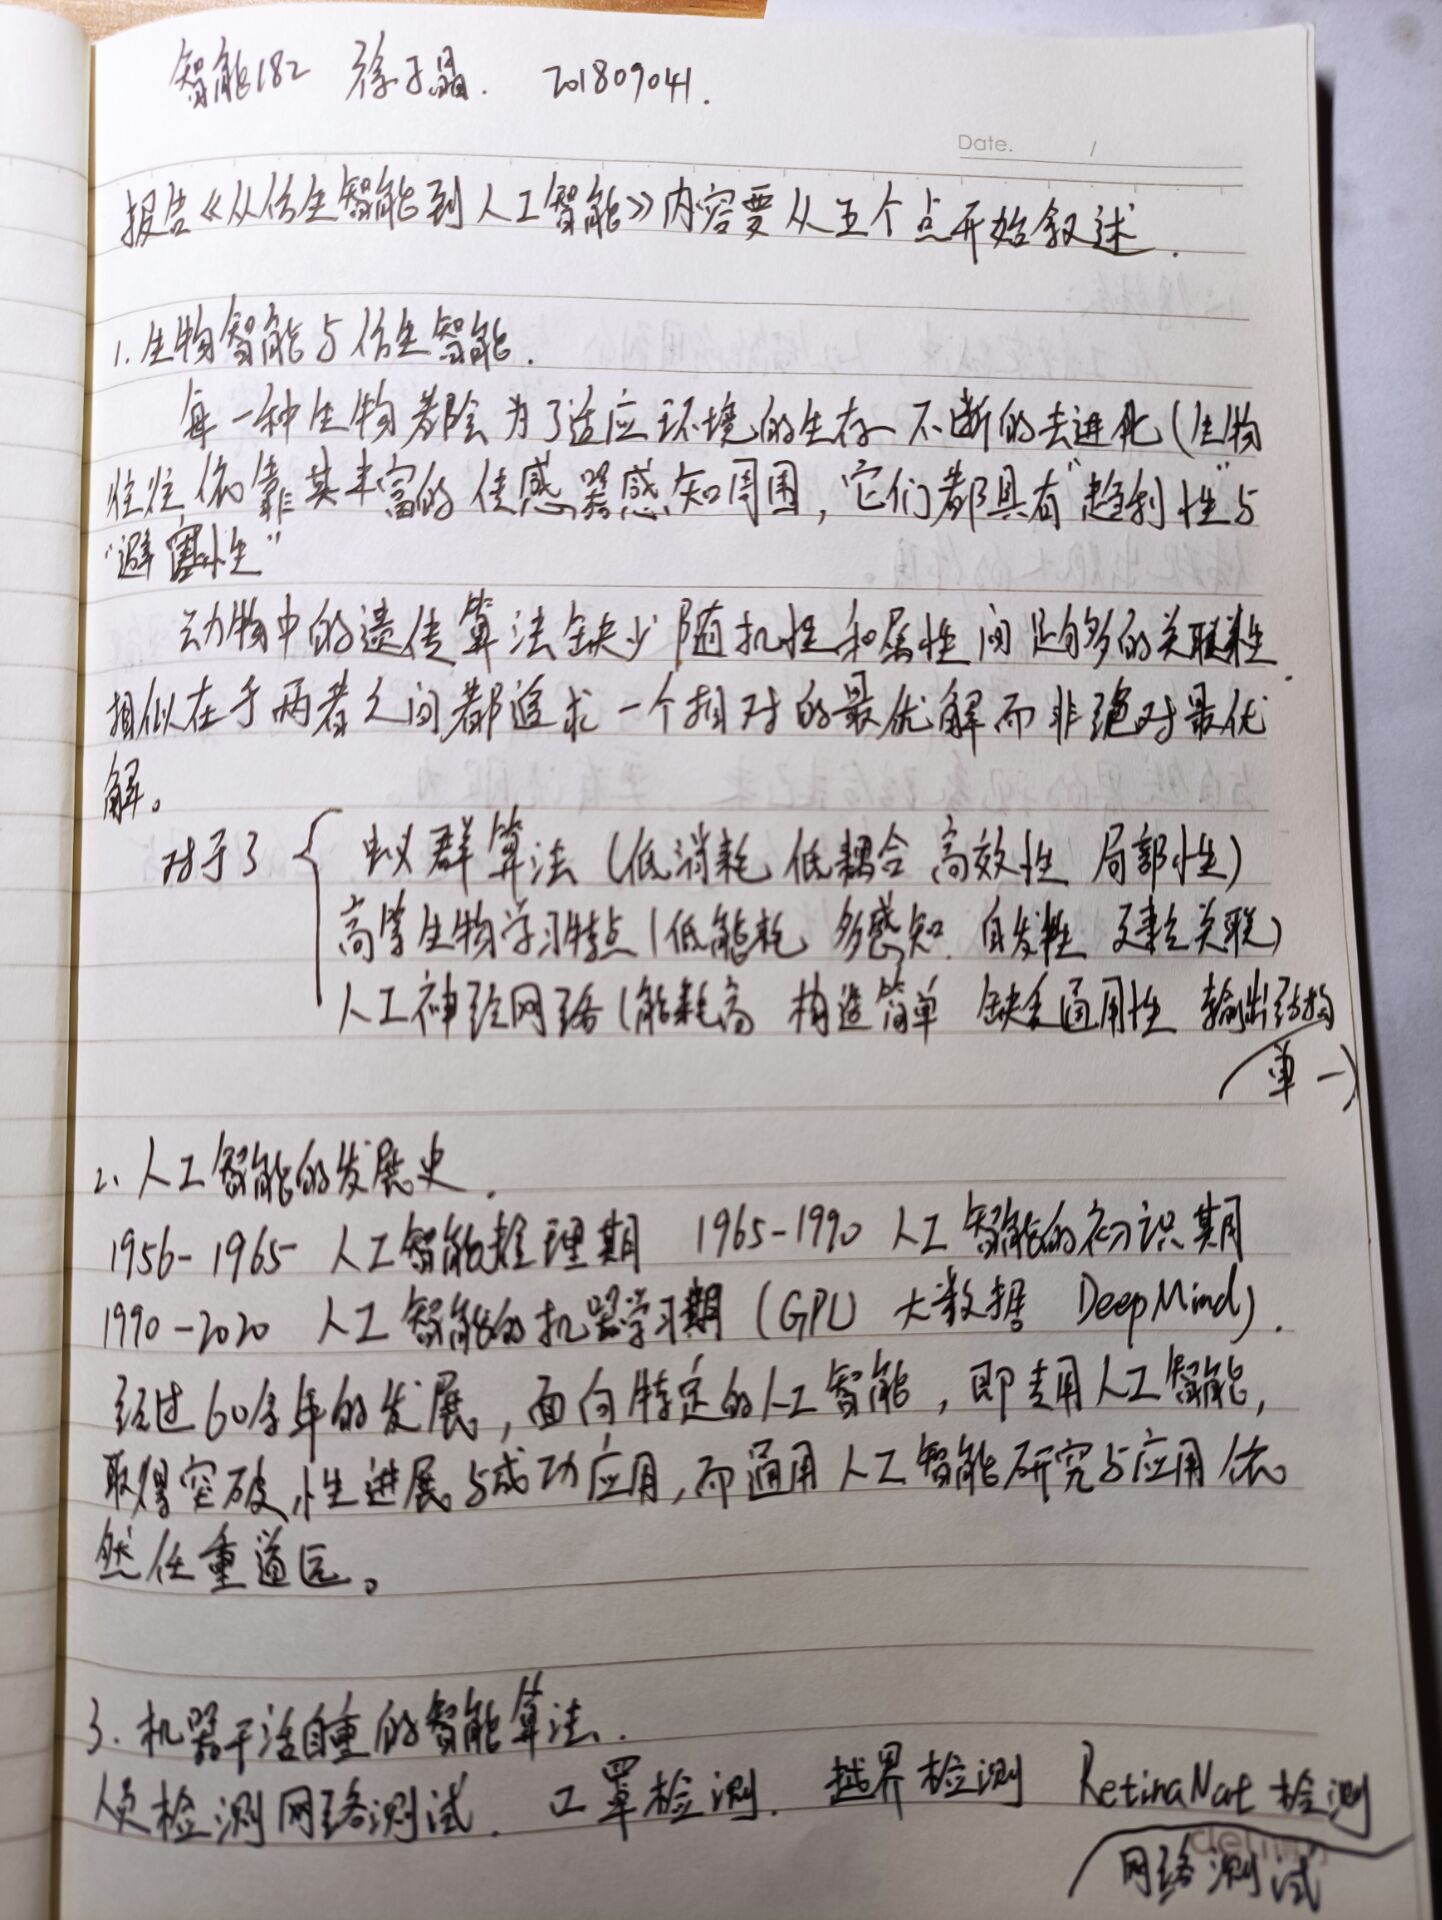 智能182 徐子晶. 201809041.
Date. /
报告《从仿生智能到人工智能》内容要从五个点开始叙述.
1. 生物智能与仿生智能.
每一种生物都会为了适应环境的生存不断的去进化(生物
往往依靠其丰富的传感器感知周围,它们都具有"趋利性"与
"避害性"
动物中的遗传算法缺少随机性和属性间足够多的关联性.
相似在于两者之间都追求一个相对的最优解而非绝对最优
解。
对于了 { 蚁群算法 (低消耗 低耦合 高效性 局部性)
高等生物学习特点(低能耗 多感知 自发性 建立关联)
人工神经网络(能耗高 构造简单 缺乏通用性 输出结构
单一)
2. 人工智能的发展史.
1956-1965 人工智能推理期 1965-1990 人工智能的初识期
1990-2020 人工智能的机器学习期 (GPU 大数据 DeepMind).
经过60余年的发展,面向特定的人工智能,即专用人工智能,
取得突破性进展与成功应用,而通用人工智能研究与应用依
然任重道远。
3. 机器干活自重的智能算法.
人员检测网络测试. 口罩检测. 越界检测 RetinaNat 检测
网络测试